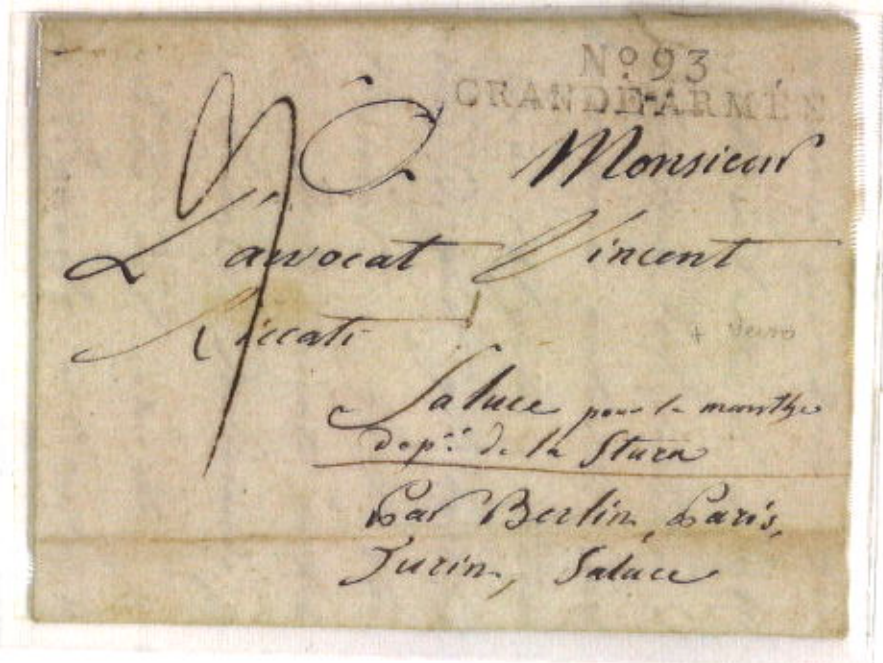 No. 93
GRANDE-ARMÉE
A Monsieur
L'avocat Vincent
Riccati
Saluce pour la
dept. de la Stura
Par Berlin, Paris,
Turin, Saluce